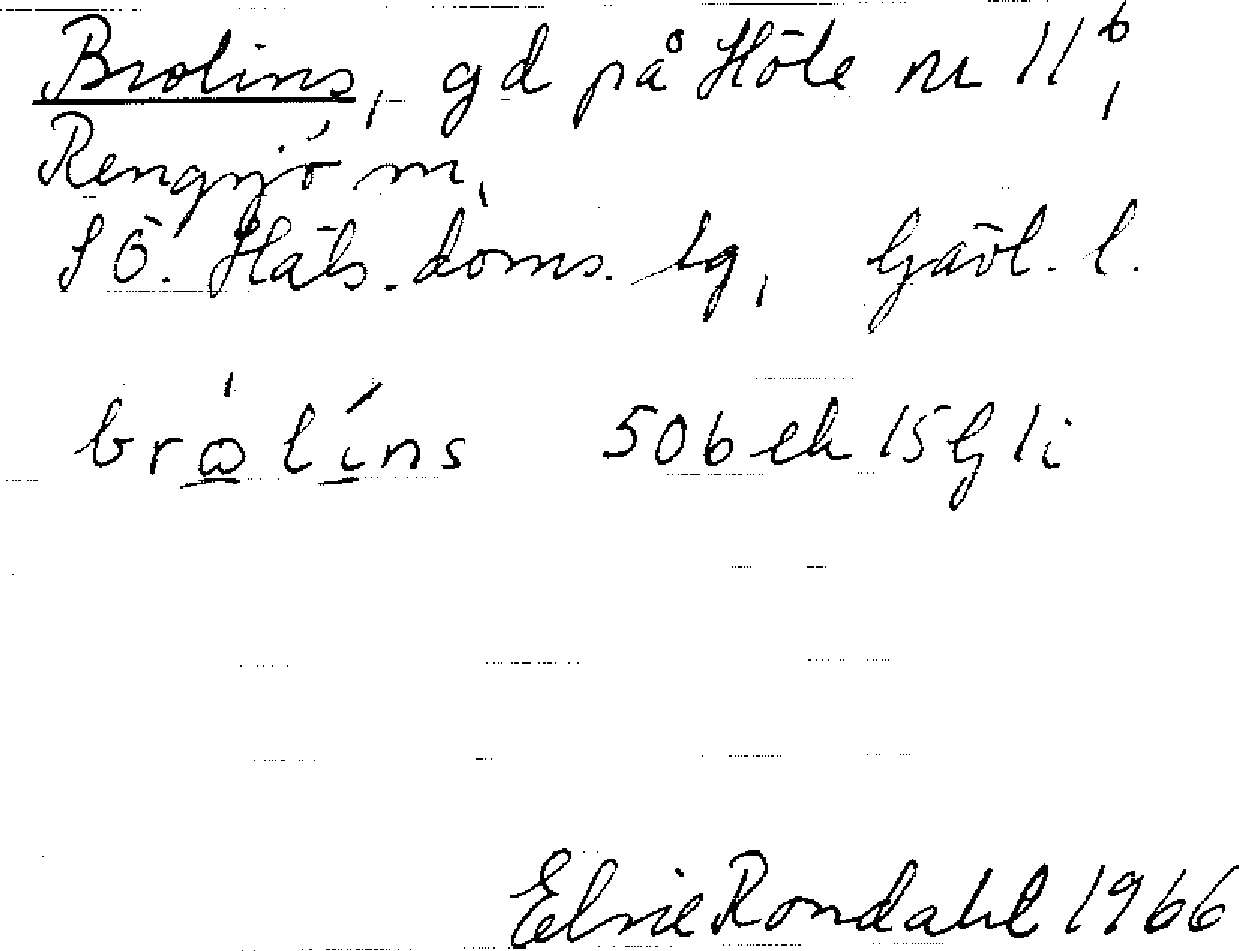 Brolins, gd på Höle nr 11b,
Rengsjö sn,
SÖ. Häls. doms. tg, Gävl. l.
brolins 50b ek 15G1i
Elsie Rondahl 1966